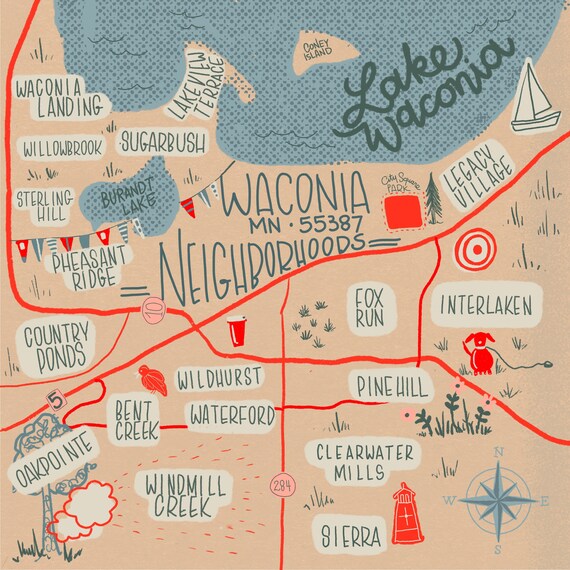 CONEY
ISLAND
Lake
Waconia
LAKEVIEW
TERRACE
WACONIA
LANDING
WILLOWBROOK
SUGARBUSH
STERLING
HILL
BURANDT
LAKE
WACONIA
MN · 55387
NEIGHBORHOODS
City Square
PARK
LEGACY
VILLAGE
PHEASANT
RIDGE
10
FOX
RUN
INTERLAKEN
COUNTRY
PONDS
WILDHURST
PINEHILL
5
BENT
CREEK
WATERFORD
OAKPOINTE
CLEARWATER
MILLS
WINDMILL
CREEK
284
SIERRA
N
W
E
S